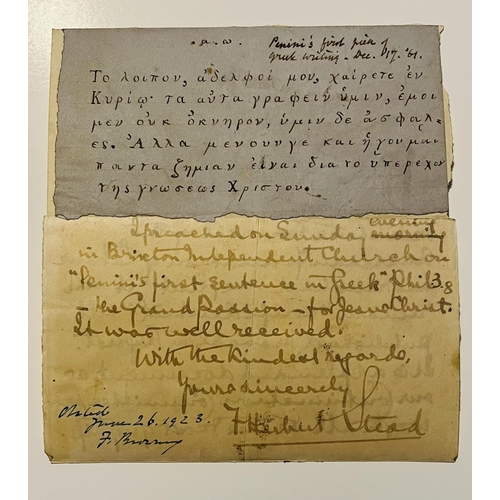 .α.ω.
Penini's first piece of
Greek writing - Dec. 17. '61.
Το λοιπον, αδελφοί μου, χαίρετε ἐν
Κυρίῳ· τα αὐτα γραφειν ὑμιν, ἐμοι
μεν οὐκ ὀκνηρον, ὑμιν δε ἀσφαλ-
ες. Ἀλλα μενουνγε και ἡγουμαι
παντα ζημιαν εἶναι δια το ὑπερεχον
της γνωσεως Χριστου.
I preached on Sunday evening morning
in Brixton Independent Church on
"Penini's first sentence in Greek" Phil 3.8
- the Grand Passion - for Jesus Christ.
It was well received.
With the kindest regards,
Yours sincerely
F Herbert Stead
June 26. 1923.